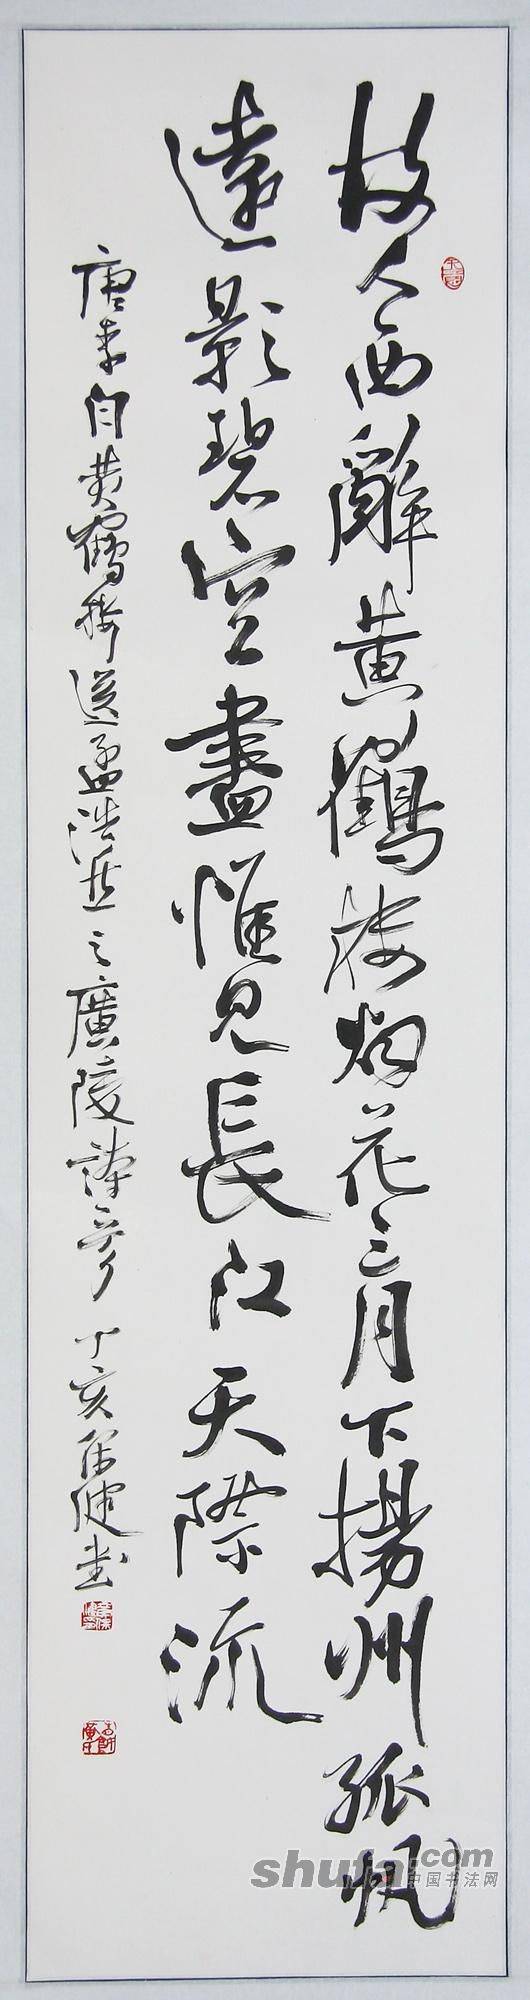 故人西辭黄鶴楼烟花三月下揚州孤帆
遠影碧空盡惟見長江天際流
唐李白黄鶴楼送孟浩然之廣陵詩意 丁亥保健书
shufa.com
中国书法网